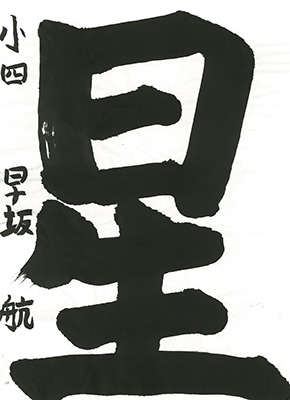 星
小四 早坂 航